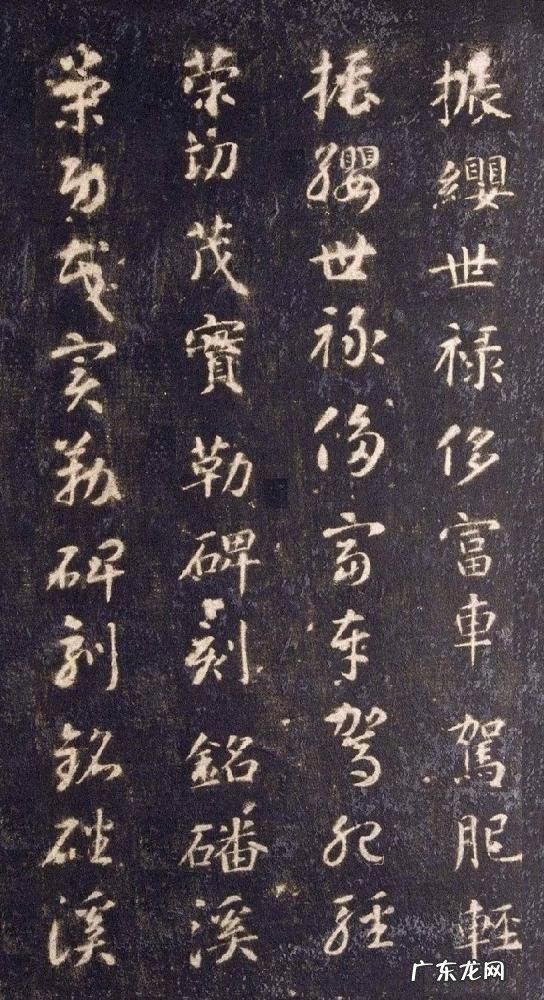 振纓世禄侈富車駕肥輕
振纓世禄侈富車駕肥輕
策功茂實勒碑刻銘磻溪
策功茂實勒碑刻銘磻溪
广东龙网